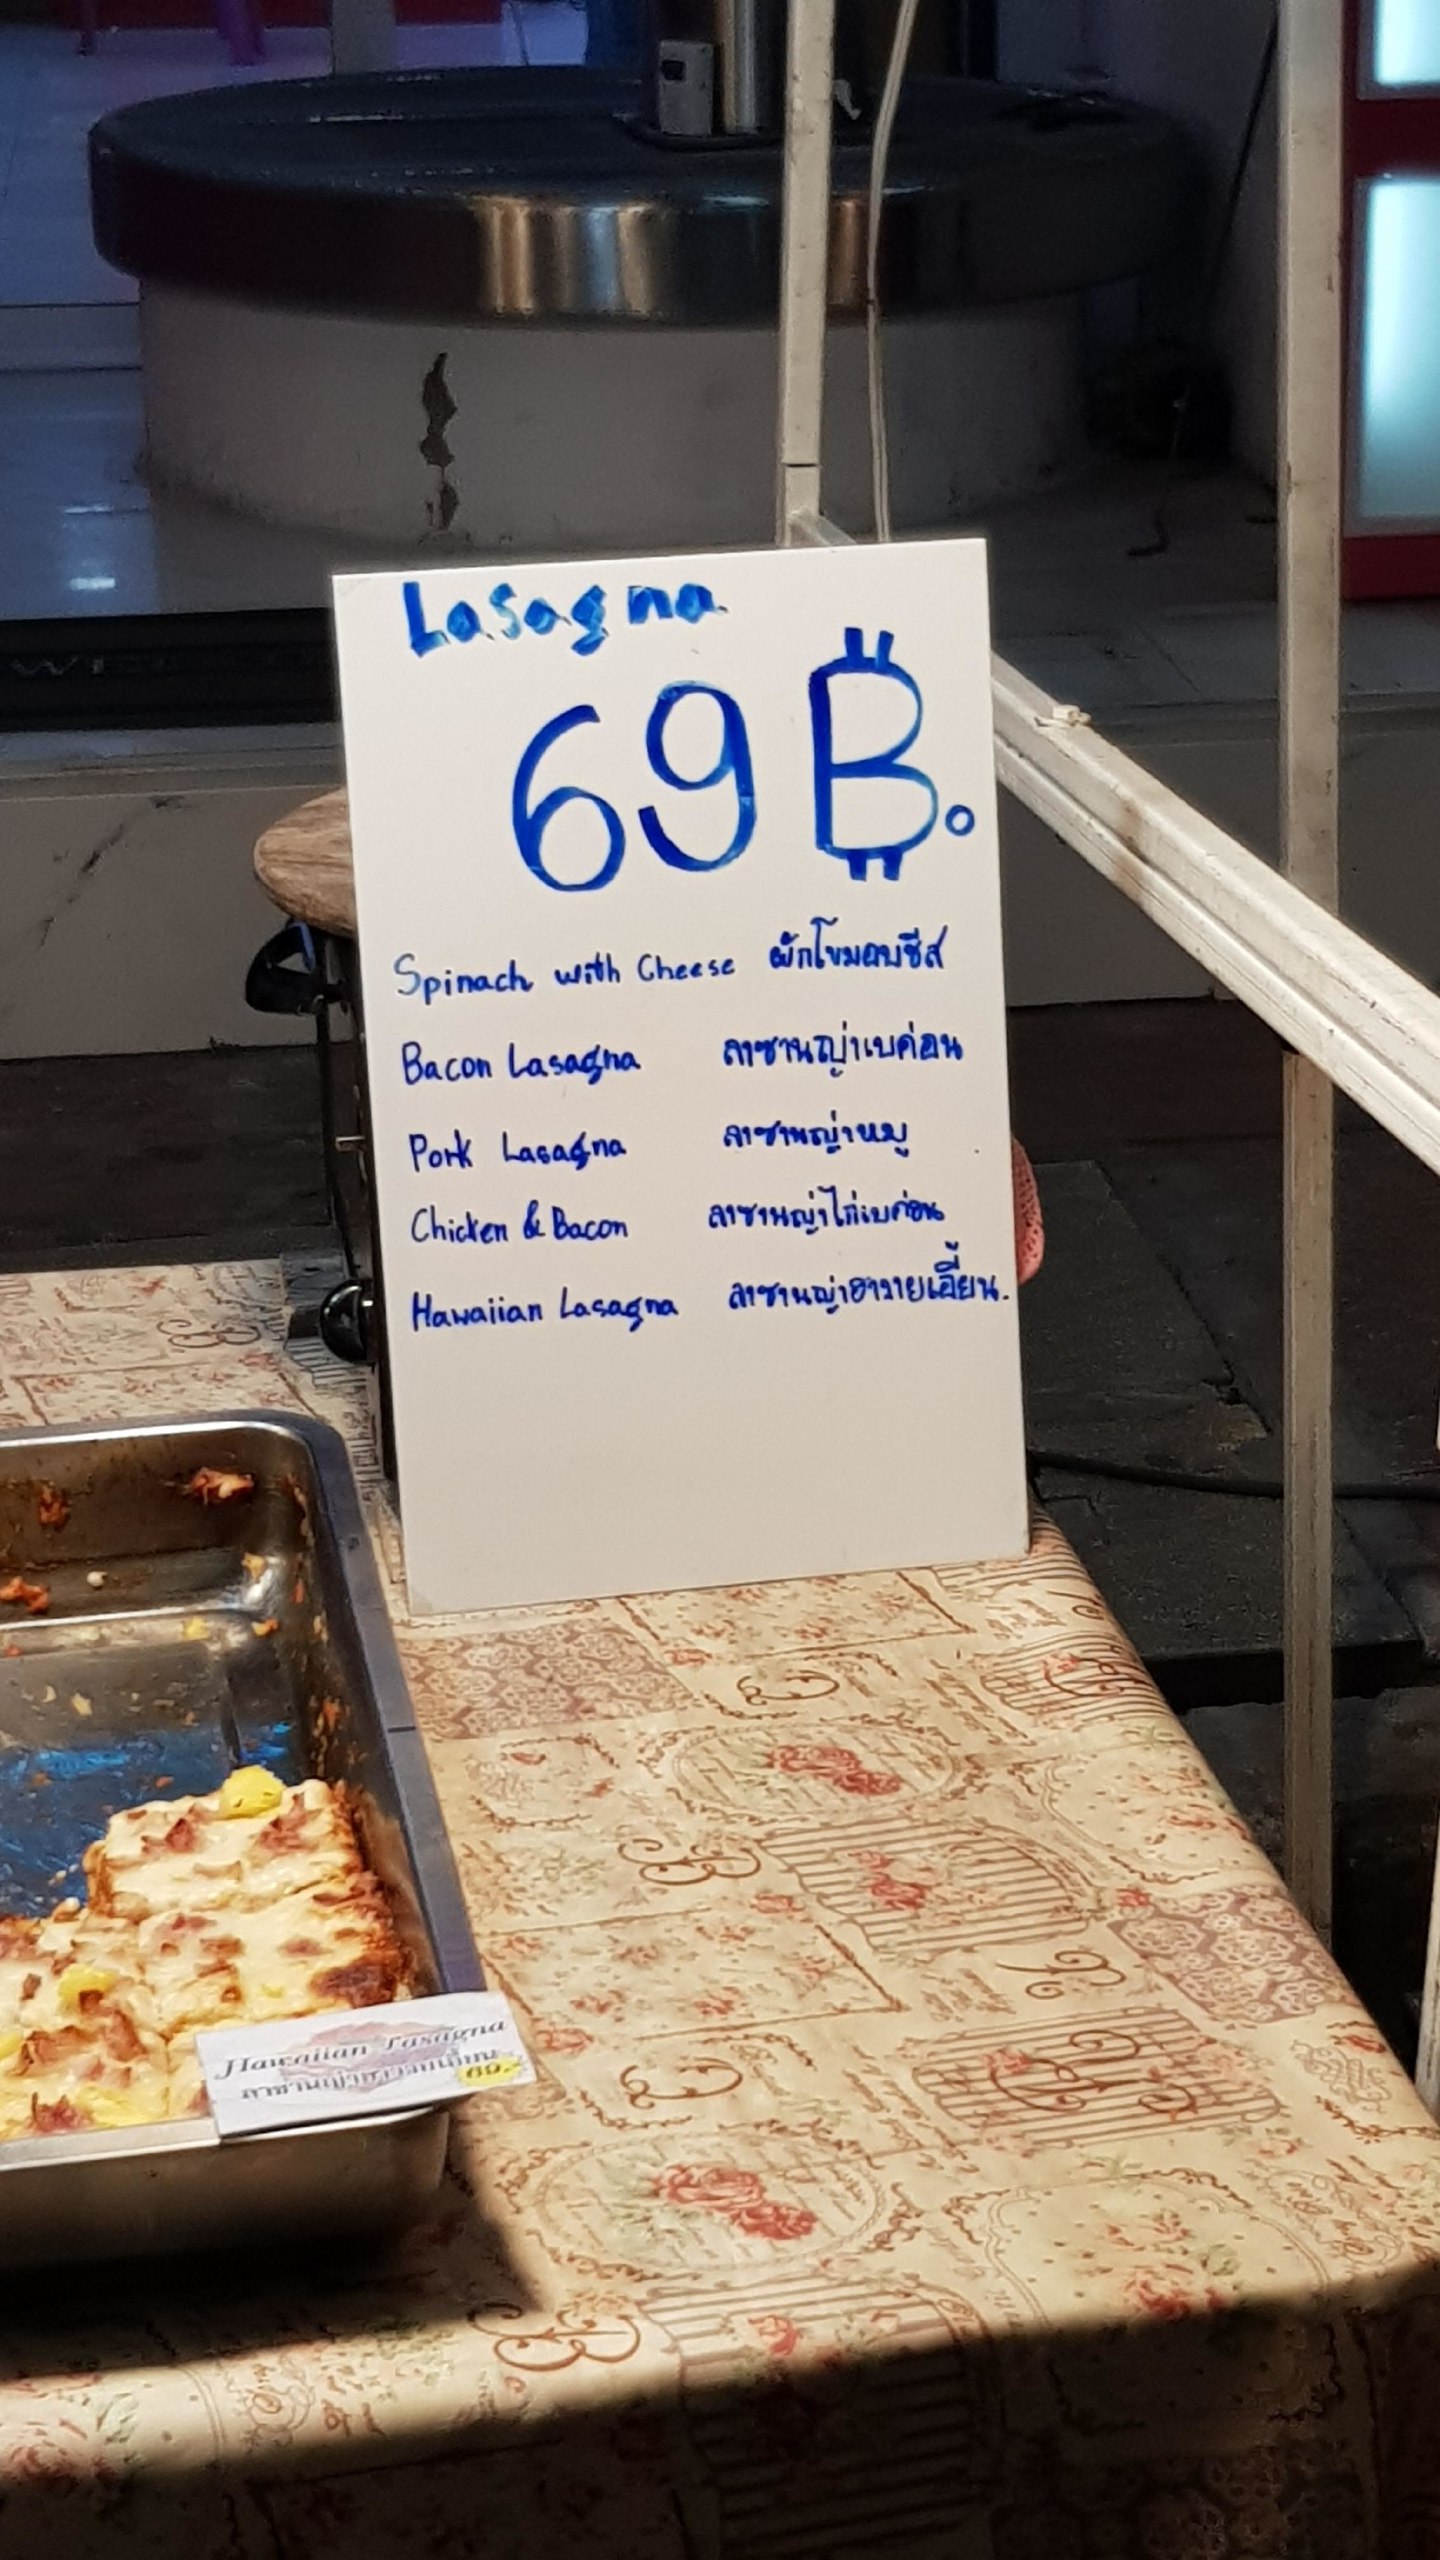 Lasagna
69 ฿.
Spinach with Cheese ผักโขมอบชีส
Bacon Lasagna ลาซานญ่าเบค่อน
Pork Lasagna ลาซานญ่าหมู
Chicken & Bacon ลาซานญ่าไก่เบค่อน
Hawaiian Lasagna ลาซานญ่าฮาวายเอี้ยน.
Hawaiian Lasagna
ลาซานญ่าฮาวายเอี้ยน 69.-